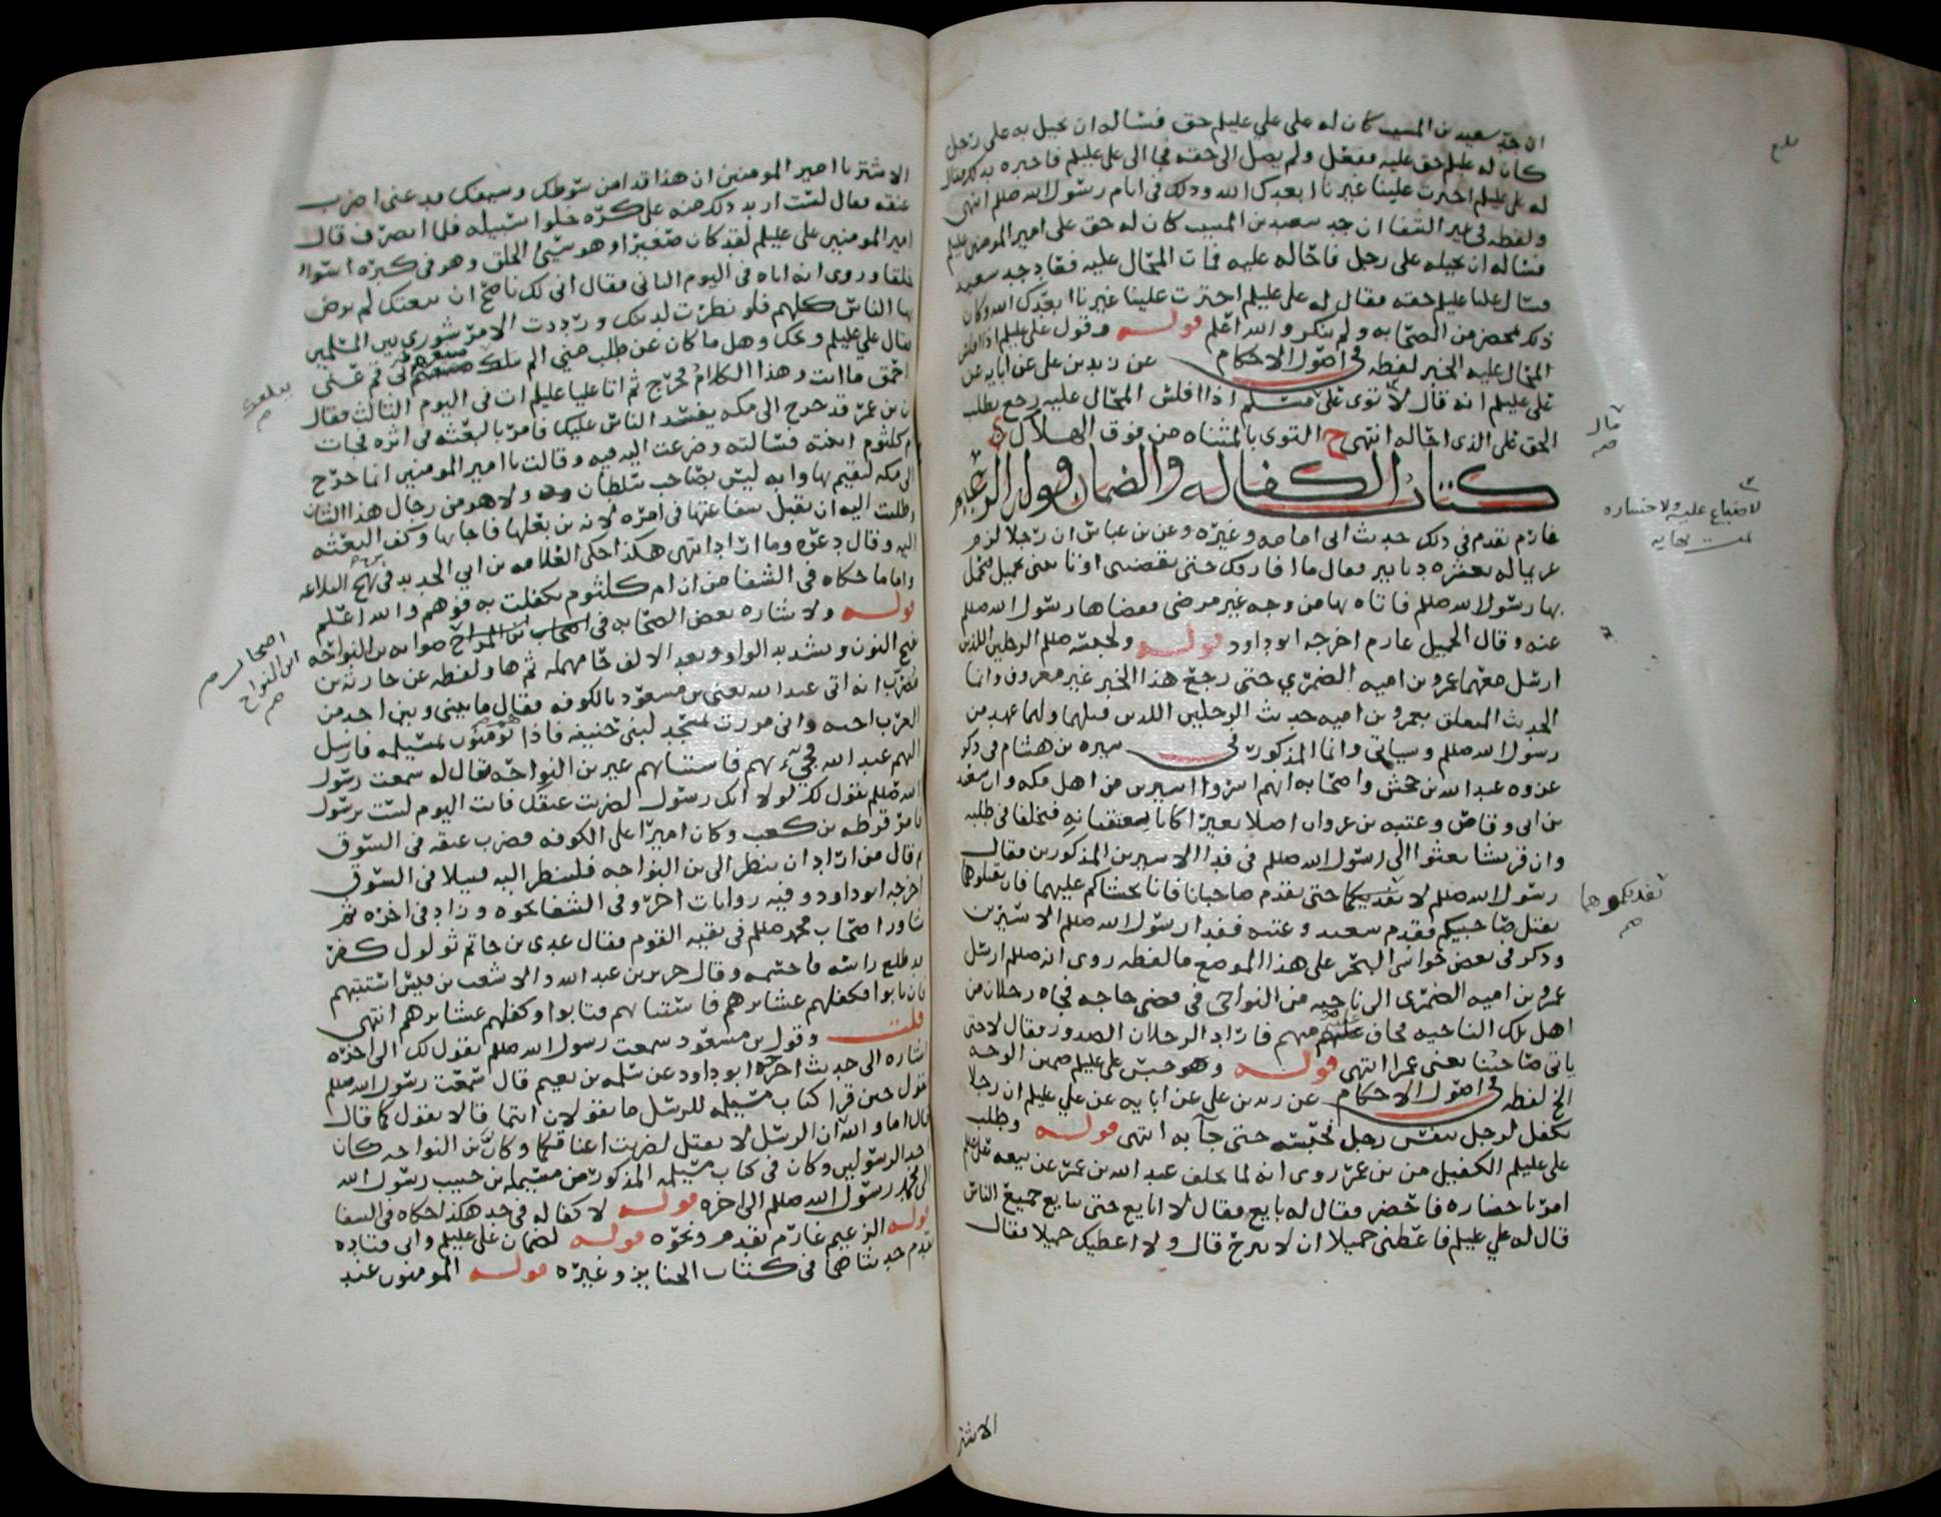 ان جد سعيد بن المسيب كان له على علي عليلم حق فسأله ان يحيل به على رجل
كان له عليلم حق عليه ففعل ولم يصل الى حقه فجا الى علي عليلم فاخبره بذلك فقال
له علي عليلم اخترت علينا غيرنا ابعدك الله وذلك في ايام رسول الله صللم انتهى
ولفظه في غير الشفا ان جد سعيد بن المسيب كان له حق على امير المومنين عليلم
فسأله ان يحيله على رجل فاحاله عليه فمات المحال عليه فعاد جد سعيد
فسال عليا عليلم حقه فقال له علي عليلم اخترت علينا غيرنا ابعدك الله وكان
ذلك بمحضر من الصحابه ولم ينكر والله اعلم قوله وقول علي عليلم اذا افلس
المحال عليه الخبر لفظه في اصول الاحكام عن زيد بن علي عن ابايه عن
علي عليلم انه قال لا توى على مسلم اذا افلس المحال عليه رجع يطلب
الحق على الذي احاله انتهى ح التوى بالمثناه من فوق الهلاك
كتاب الكفاله والضمان قوله الزعيم
غارم تقدم في ذلك حديث ابي امامه وغيره وعن بن عباس ان رجلا لزم
غريما له بعشره دنانير فقال ما افارقك حتى تقضيني او تاتيني بحميل فتحمل
بها رسول الله صللم فاتاه بها من وجه غير مرضي فقضاها رسول الله صللم
عنه وقال الحميل غارم اخرجه ابو داود قوله ولحبسه صللم الرجلين اللذين
ارسل معهما عمرو بن اميه الضمري حتى رجع هذا الخبر غير معروف وانما
الحديث المتعلق بعمرو بن اميه حديث الرجلين اللذين قتلهما ولهما عهد من
رسول الله صللم وسياتي وانما المذكور في سيره بن هشام في ذكر
غزوه عبد الله بن جحش واصحابه انهم اسروا اسيرين من اهل مكه وان سعد
بن ابي وقاص وعتبه بن غزوان اضلا بعيرا كانا يعتقبانه فتخلفا في طلبه
وان قريشا بعثوا الى رسول الله صللم في فدا الاسيرين المذكورين فقال
رسول الله صللم لا نفديكما حتى يقدم صاحبانا فانا نخشاكم عليهما فان تقتلوهما
نقتل صاحبيكم فقدم سعد وعتبه ففدا رسول الله صللم الاسيرين
وذكر في بعض حواشي البحر على هذا الموضع ما لفظه روى انه صللم ارسل
عمرو بن اميه الضمري الى ناحيه من النواحي في قضى حاجه فجاه رجلان من
اهل تلك الناحيه فخاف عليه منهم فاراد الرجلان الصدور فقال لا حتى
ياتي صاحبنا يعني عمرا انتهى قوله وهو حبس علي عليلم ضمين الوجه
الخ لفظه في اصول الاحكام عن زيد بن علي عن ابايه عن علي عليلم ان رجلا
تكفل لرجل بنفس رجل فحبسه حتى جآ به انتهى قوله وطلب
علي عليلم الكفيل من بن عمر روى انه لما تخلف عبد الله بن عمر عن بيعه علي عليلم
امر باحضاره فاحضر فقال له بايع فقال لا ابايع حتى يبايع جميع الناس
قال له علي عليلم فاعطني حميلا ان لا تبرح قال ولا اعطيك حميلا فقال
الاشتر
قال
صح
نفديكموهما
صح
الاشتر يا امير المومنين ان هذا قد امن سوطك وسيفك فدعني اضرب
عنقه فقال لست اريد ذلك منه على كره خلوا سبيله فلما انصرف قال
امير المومنين علي عليلم لقد كان صغيرا وهو سيئ الخلق وهو في كبره اسوا
خلقا وروى انه اتاه في اليوم الثاني فقال اني لك ناصح ان بيعتك لم يرض
بها الناس كلهم فلو نظرت لدينك ورددت الامر شورى بين المسلمين
فقال علي عليلم ويحك وهل ما كان عن طلب مني الم يبلغك صنيعهم لي قم عني
احمق ما انت وهذا الكلام فخرج ثم اتا عليا عليلم ات في اليوم الثالث فقال
ان بن عمر قد خرج الى مكه يفسد الناس عليك فامر بالبعثه في اثره فجات
ام كلثوم ابنته فسالته وضرعت اليه فيه وقالت يا امير المومنين انما خرج
الى مكه ليقيم بها وانه ليس بصاحب سلطان ولا هو من رجال هذا الشان
وطلبت اليه ان يقبل شفاعتها في امره لانه بن بعلها فاجابها وكف البعثه
اليه وقال دعوه وما اراد انتهى هكذا حكى العلامه بن ابي الحديد في شرح نهج البلاغه
واما ما حكاه في الشفا من ان ام كلثوم تكفلت به فوهم والله اعلم
قوله ولاشاره بعض الصحابه في اصحاب ابن المراح صوابه بن النواحه
بفتح النون وتشديد الواو وبعد الالف حا مهمله ثم ها ولفظه عن حارثه بن
مضرب انه اتى عبد الله يعني بن مسعود بالكوفه فقال ما بيني وبين احد من
العرب احنه واني مررت بمسجد لبني حنيفه فاذا هم يومنون بمسيلمه فارسل
اليهم عبد الله فجيء بهم فاستتابهم غير بن النواحه فقال له سمعت رسول
الله صللم يقول لك لولا انك رسول لضربت عنقك فانت اليوم لست برسول
فامر قرظه بن كعب وكان اميرا على الكوفه فضرب عنقه في السوق
ثم قال من اراد ان ينظر الى بن النواحه فلينظر اليه قتيلا في السوق
اخرجه ابو داود وفيه روايات اخر وفي الشفا نحوه وزاد في اخره ثم
شاور اصحاب محمد صللم في بقيه القوم فقال عدي بن حاتم ثولول كفر
قد طلع راسه فاحسمه وقال جرير بن عبد الله والاشعث بن قيس استتبهم
فان تابوا فكفلهم عشايرهم فاستتابهم فتابوا وكفلهم عشايرهم انتهى
قلت وقول بن مسعود سمعت رسول الله صللم يقول لك الى اخره
اشاره الى حديث اخرجه ابو داود عن سلمه بن نعيم قال سمعت رسول الله صللم
يقول حين قرا كتاب مسيلمه للرسل ما تقولان انتما قالا نقول كما قال
قال اما والله ان الرسل لا تقتل لضربت اعناقكما وكان بن النواحه كان
احد الرسولين وكان في كتاب مسيلمه المذكور من مسيلمه بن حبيب رسول الله
الى محمد رسول الله صللم الى اخره قوله لا كفاله في حد هكذا حكاه في الشفا
قوله الزعيم غارم تقدم ونحوه قوله لضمان علي عليلم وابي قتاده
تقدم حديثاهما في كتاب الجنايز وغيره قوله المومنون عند
اصحاب
ابن النواح
صح